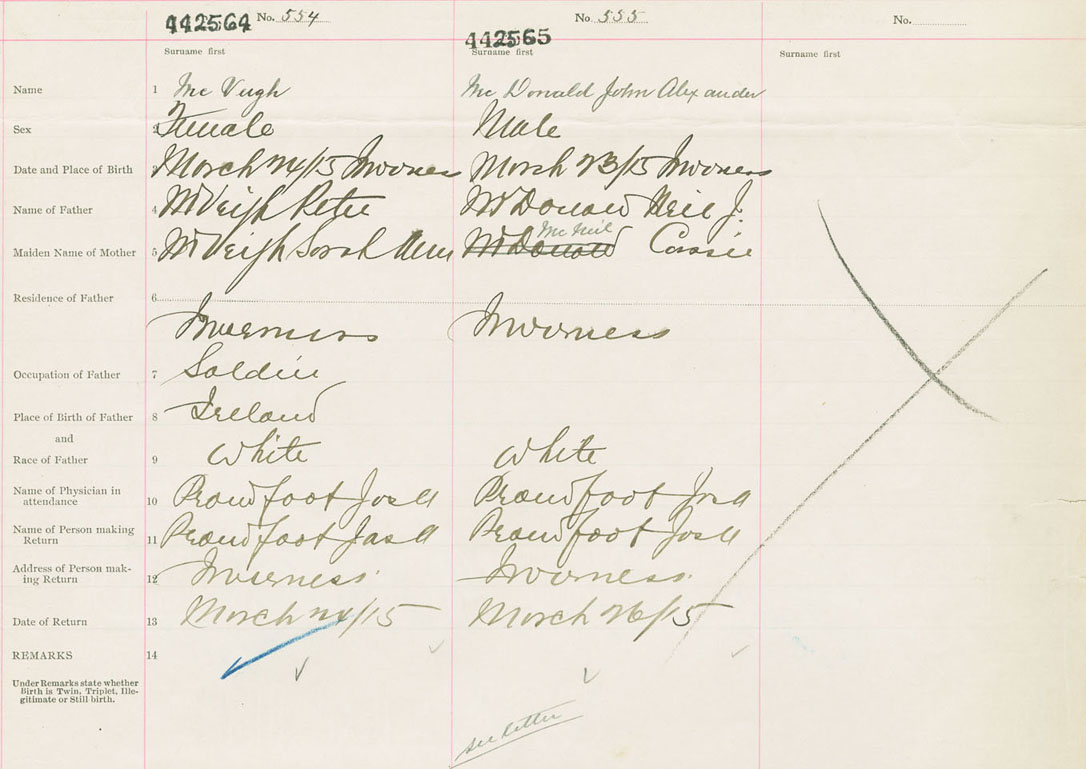 442564 No. 554
442565 No. 555
No.
Surname first
Surname first
Surname first
Name 1 Mc Vugh Mc Donald John Alexander
Sex 2 Female Male
Date and Place of Birth 3 March 24/15 Inverness March 23/15 Inverness
Name of Father 4 McVeigh Peter McDonald Neil J.
Mc Neil
Maiden Name of Mother 5 McVeigh Sarah Ann McDonald Cassie
Residence of Father 6
Inverness Inverness
Occupation of Father 7 Soldier
Place of Birth of Father 8 Ireland
and
Race of Father 9 White White
Name of Physician in
attendance 10 Proudfoot Jas A Proudfoot Jas A
Name of Person making
Return 11 Proudfoot Jas A Proudfoot Jas A
Address of Person mak-
ing Return 12 Inverness. Inverness.
Date of Return 13 March 24/15 March 26/15
REMARKS 14
Under Remarks state whether
Birth is Twin, Triplet, Ille-
gitimate or Still birth.
see letter